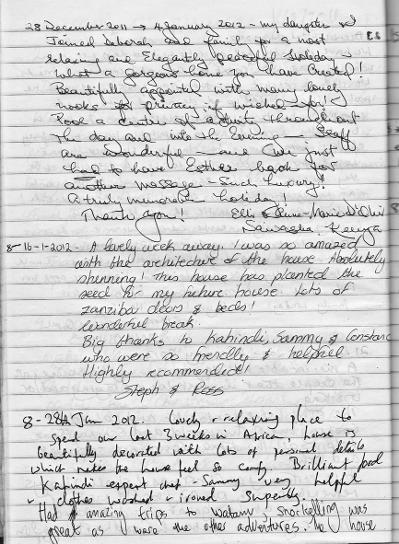 28 December 2011 → 4 January 2012 - my daughter & I
Joined Deborah and family for a most
relaxing and Elegantly peaceful holiday -
What a gorgeous home you have created!
Beautifully appointed with many lovely
nooks for privacy if wished for!
Pool a centre of activity throughout
the day and into the Evening - Staff
are wonderful - and we just
had to have Esther back for
another massage - Such luxury!
A truly memorable holiday!
Thank you!
Naivasha - Kenya
8-16-1-2012 - A lovely week away. I was so amazed
with the architecture of the house. Absolutely
stunning! This house has planted the
seed for my future house. Lots of
zanzibar doors & beds!
Wonderful break.
Big thanks to Kahindi, Sammy & Constance
who were so friendly & helpful.
Highly recommended!
Steph & Ross
8-28th Jan 2012. Lovely + relaxing place to
spend our last 3 weeks in Africa, house is
beautifully decorated with lots of personal details
which makes the house feel so comfy. Brilliant food
Kahindi expert chef - Sammy very helpful
clothes washed + ironed superbly.
Had amazing trips to Watamu, snorkelling was
great as were the other adventures. The house